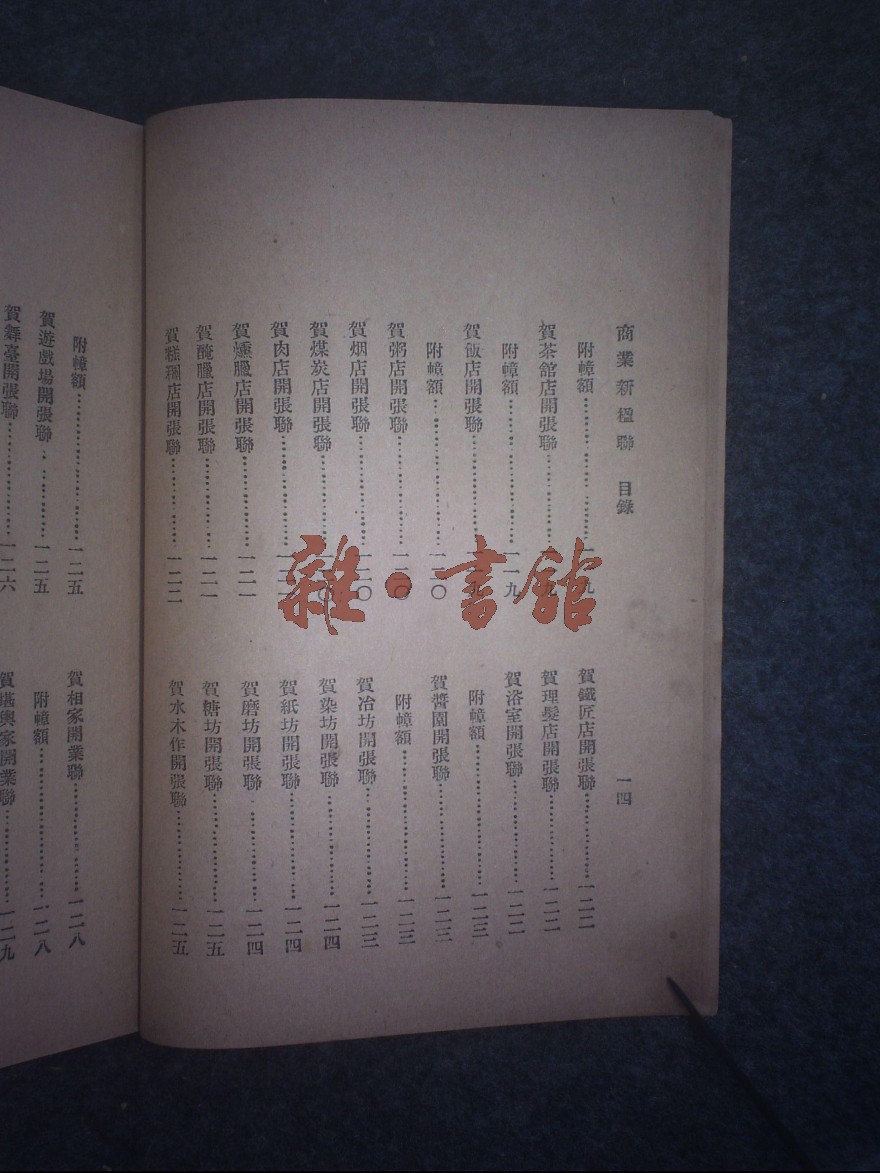 商業新楹聯 目錄 一四
附幛額……一一九
賀茶館店開張聯……一一九
附幛額……一一九
賀飯店開張聯……一一九
附幛額……一二〇
賀粥店開張聯……一二〇
賀烟店開張聯……一二〇
賀煤炭店開張聯……一二〇
賀肉店開張聯……一二一
賀燻臘店開張聯……一二一
賀醃臘店開張聯……一二一
店開張聯……一二二
賀鐵匠店開張聯……一二二
賀理髮店開張聯……一二二
賀浴室開張聯……一二二
附幛額……一二三
賀醬園開張聯……一二三
附幛額……一二三
賀冶坊開張聯……一二三
賀染坊開張聯……一二四
賀紙坊開張聯……一二四
賀磨坊開張聯……一二四
賀糖坊開張聯……一二五
賀水木作開張聯……一二五
附幛額……一二五
賀遊戲場開張聯……一二五
賀舞臺開張聯……一二六
賀相家開業聯……一二八
附幛額……一二八
賀堪輿家開業聯……一二九
雜·書館